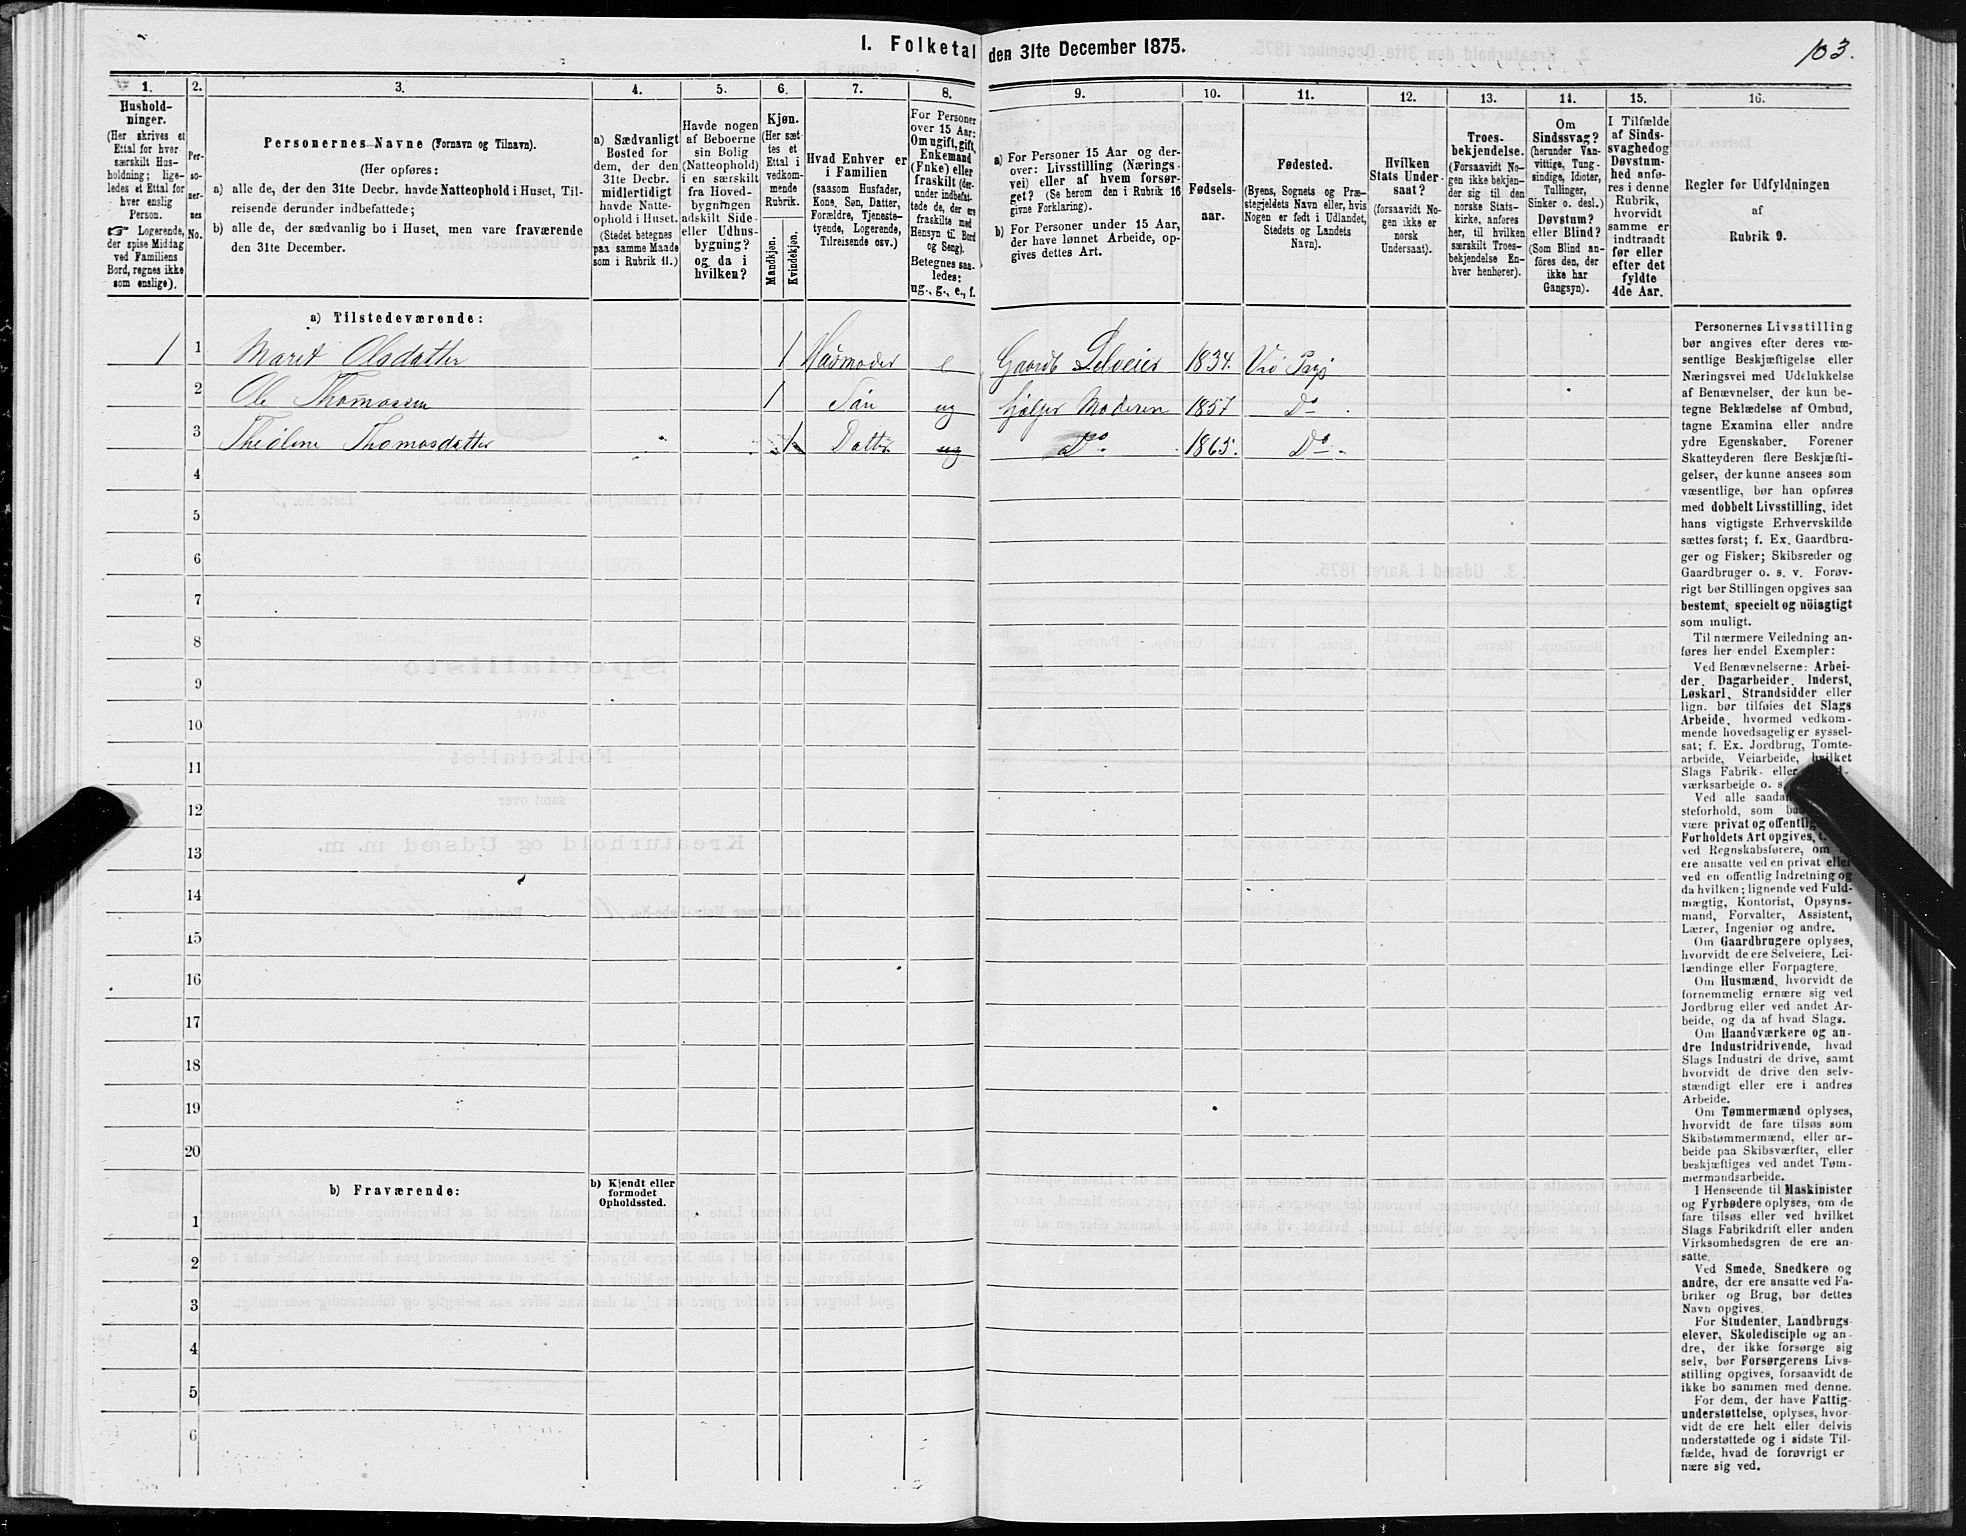 1. Folketal den 31te December 1875.
103.
1.
Hushold-
ninger.
(Her skrives et
Ettal for hver
særskilt Hus-
holdning; lige-
ledes et Ettal for
hver enslig
Person.
☞ Logerende,
der spise Middag
ved Familiens
Bord, regnes ikke
som enslige).
2.
Per-
so-
ner-
nes
No.
3.
Personernes Navne (Fornavn og Tilnavn).
(Her opføres:
a) alle de, der den 31te Decbr. havde Natteophold i Huset, Til-
reisende derunder indbefattede;
b) alle de, der sædvanlig bo i Huset, men vare fraværende
den 31te December.
4.
a) Sædvanligt
Bosted for
dem, der den
31te Decbr.
midlertidigt
havde Natte-
ophold i Huset.
(Stedet betegnes
paa samme Maade
som i Rubrik 11.)
5.
Havde nogen
af Beboerne
sin Bolig
(Natteophold)
i en særskilt
fra Hoved-
bygningen
adskilt Side-
eller Udhus-
bygning?
og da i
hvilken?
6.
Kjøn.
(Her sæt-
tes et
Ettal i
vedkom-
mende
Rubrik.
Mandkjøn.
Kvindekjøn.
7.
Hvad Enhver er
i Familien
(saasom Husfader,
Kone, Søn, Datter,
Forældre, Tjeneste-
tyende, Logerende,
Tilreisende osv.)
8.
For Personer
over 15 Aar:
Om ugift, gift,
Enkemand
(Enke) eller
fraskilt (der-
under indbefat-
tede de, der ere
fraskilte med
Hensyn til Bord
og Seng).
Betegnes saa-
ledes:
ug., g., e., f.
9.
a) For Personer 15 Aar og der-
over: Livsstilling (Nærings-
vei) eller af hvem forsør-
get? (Se herom den i Rubrik 16
givne Forklaring).
b) For Personer under 15 Aar,
der have lønnet Arbeide, op-
gives dettes Art.
10.
Fødsels-
aar.
11.
Fødested.
(Byens, Sognets og Præ-
stegjeldets Navn eller, hvis
Nogen er født i Udlandet,
Stedets og Landets
Navn).
12.
Hvilken
Stats Under-
saat?
(forsaavidt No-
gen ikke er
norsk
Undersaat).
13.
Troes-
bekjendelse.
(Forsaavidt No-
gen ikke bekjen-
der sig til den
norske Stats-
kirke, anføres
her, til hvilken
særskilt Troes-
bekjendelse En-
hver henhører).
14.
Om
Sindssvag?
(herunder Van-
vittige, Tung-
sindige, Idioter,
Tullinger,
Sinker o. desl.)
Døvstum?
eller Blind?
(Som Blind an-
føres den, der
ikke har
Gangsyn).
15.
I Tilfælde
af Sinds-
svaghed og
Døvstum-
hed anfø-
res i denne
Rubrik,
hvorvidt
samme er
indtraadt
før eller
efter det
fyldte
4de Aar.
16.
Regler for Udfyldningen
af
Rubrik 9.
a) Tilstedeværende:
1 1 Marit Olsdatter 1 Husmoder e Gaardb Selveier 1834. Viø Pgj
2 Ole Thomassen 1 Søn ug hjelper Moderen 1857 Do
3 Theoline Thomasdatter 1 Datter ug Do. 1865. Do
4
5
6
7
8
9
10
11
12
13
14
15
16
17
18
19
20
b) Fraværende:
b) Kjendt eller
formodet
Opholdssted.
1
2
3
4
5
6
Personernes Livsstilling
bør angives efter deres væ-
sentlige Beskjæftigelse eller
Næringsvei med Udelukkelse
af Benævnelser, der kun be-
tegne Beklædelse af Ombud,
tagne Examina eller andre
ydre Egenskaber. Forener
Skatteyderen flere Beskjæfti-
gelser, der kunne ansees som
væsentlige, bør han opføres
med dobbelt Livsstilling, idet
hans vigtigste Erhvervskilde
sættes først; f. Ex. Gaardbru-
ger og Fisker; Skibsreder og
Gaardbruger o. s. v. Forøv-
rigt bør Stillingen opgives saa
bestemt, specielt og nöiagtigt
som muligt.
Til nærmere Veiledning an-
føres her endel Exempler:
Ved Benævnelserne: Arbei-
der, Dagarbeider, Inderst,
Løskarl, Strandsidder eller
lign. bør tilføies det Slags
Arbeide, hvormed vedkom-
mende hovedsagelig er syssel-
sat; f. Ex. Jordbrug, Tomte-
arbeide, Veiarbeide, hvilket
Slags Fabrik- eller
værksarbeide o. s.
Ved alle saadan
steforhold, som
være privat og offentlig
Forholdets Art opgives,
ved Regnskabsførere, om
ere ansatte ved en privat eller
ved en offentlig Indretning og
da hvilken; lignende ved Fuld-
mægtig, Kontorist, Opsyns-
mand, Forvalter, Assistent,
Lærer, Ingeniør og andre.
Om Gaardbrugere oplyses,
hvorvidt de ere Selveiere, Lei-
lændinge eller Forpagtere.
Om Husmænd, hvorvidt de
fornemmelig ernære sig ved
Jordbrug eller ved andet Ar-
beide, og da af hvad Slags.
Om Haandværkere og an-
dre Industridrivende, hvad
Slags Industri de drive, samt
hvorvidt de drive den selv-
stændigt eller ere i andres
Arbeide.
Om Tømmermænd oplyses,
hvorvidt de fare tilsøs som
Skibstømmermænd, eller ar-
beide paa Skibsværfter, eller
beskjæftiges ved andet Tøm-
mermandsarbeide.
I Henseende til Maskinister
og Fyrbødere oplyses, om de
fare tilsøs eller ved hvilket
Slags Fabrikdrift eller anden
Virksomhedsgren de ere an-
satte.
Ved Smede, Snedkere og
andre, der ere ansatte ved Fa-
briker og Brug, bør dettes
Navn opgives.
For Studenter, Landbrugs-
elever, Skoledisciple og an-
dre, der ikke forsørge sig
selv, bør Forsørgerens Livs-
stilling opgives, forsaavidt de
ikke bo sammen med denne.
For dem, der have Fattig-
understøttelse, oplyses, hvor-
vidt de ere helt eller delvis
understøttede og i sidste Til-
fælde, hvad de forøvrigt er-
nære sig ved.